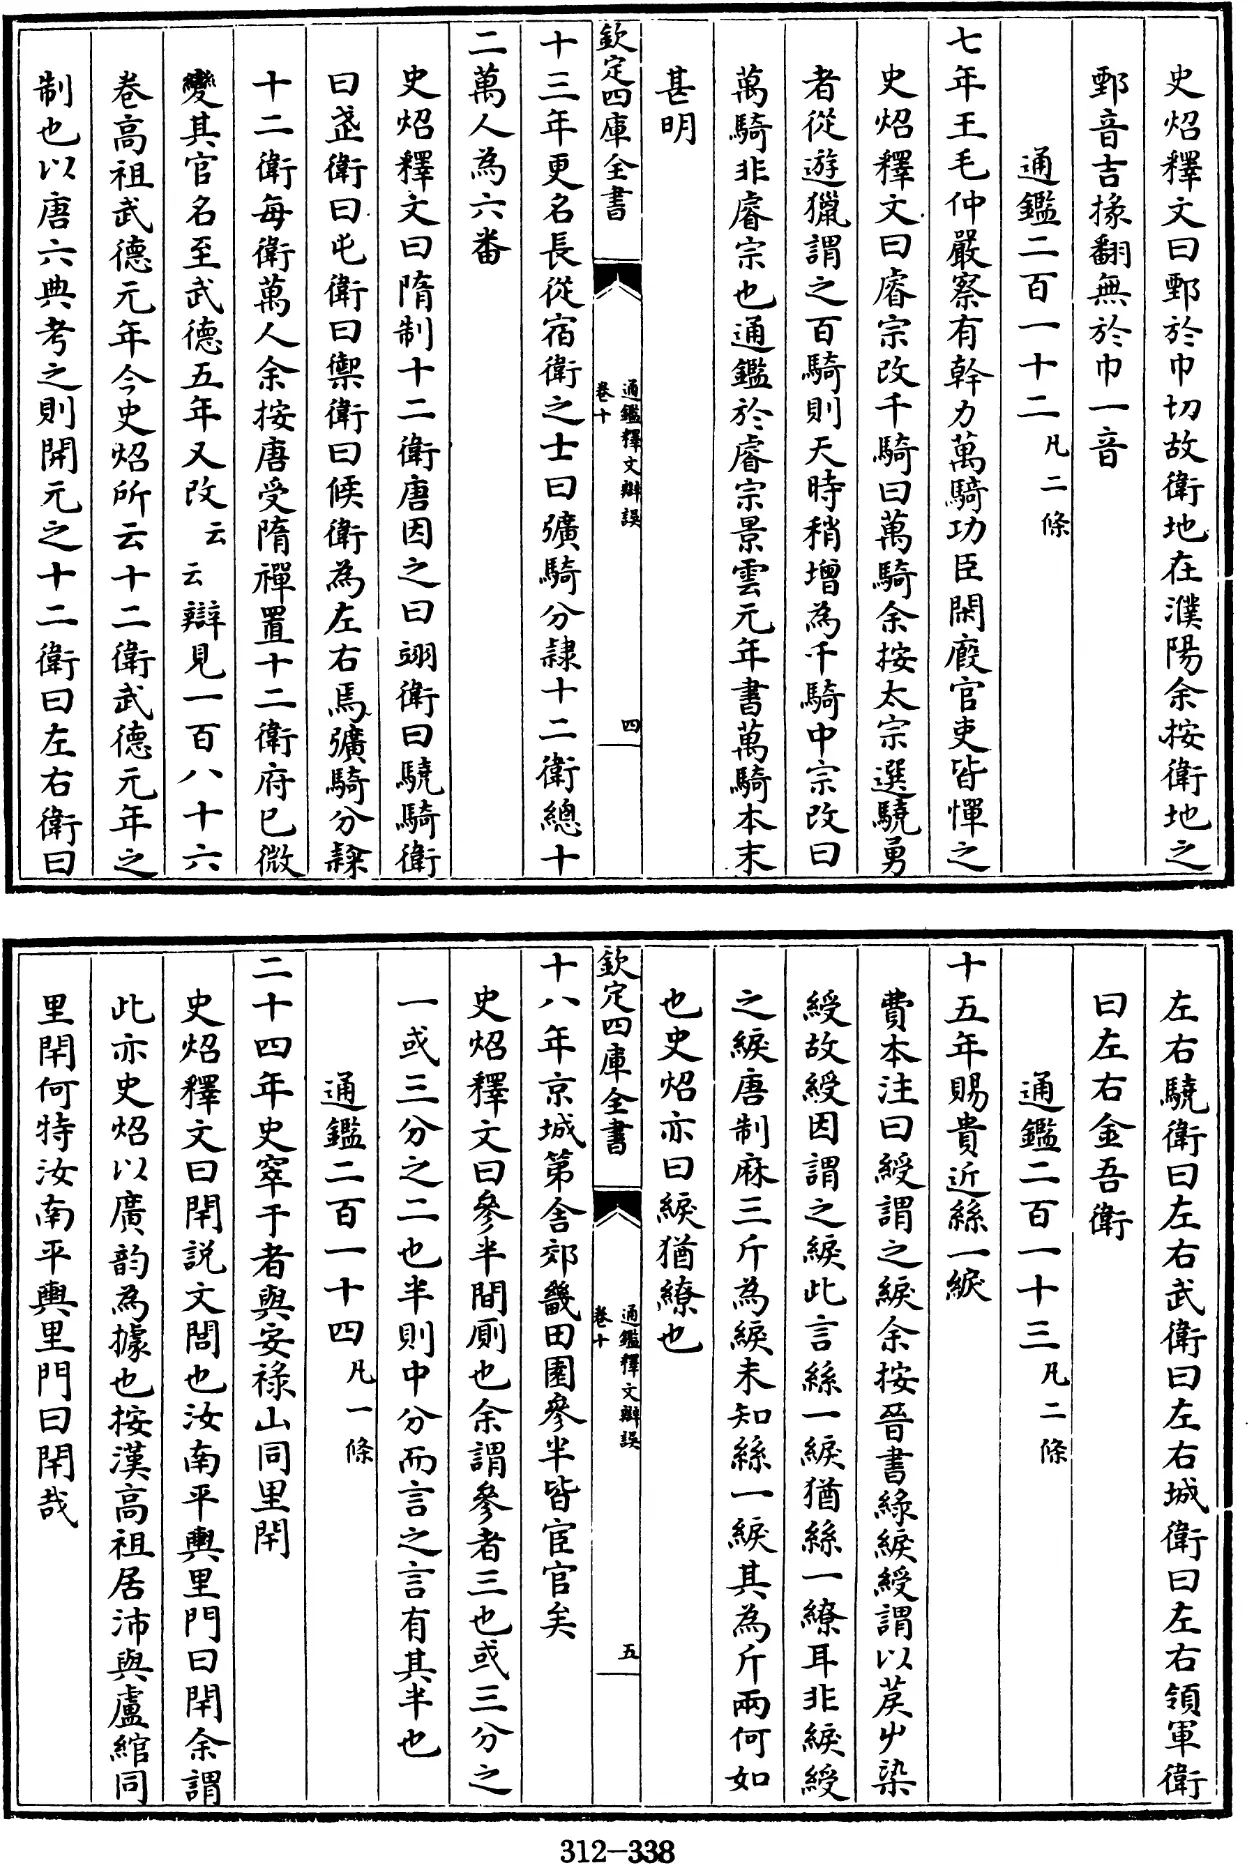 史炤釋文曰鄄於巾切故衛地在濮陽余按衛地之
鄄音吉掾翻無於巾一音
通鑑二百一十二凡二條
七年王毛仲嚴察有幹力萬騎功臣閑廄官吏皆憚之
史炤釋文曰睿宗改千騎曰萬騎余按太宗選驍勇
者從遊獵謂之百騎則天時稍增為千騎中宗改曰
萬騎非睿宗也通鑑於睿宗景雲元年書萬騎本末
甚明
欽定四庫全書
通鑑釋文辯誤
卷十
四
十三年更名長從宿衛之士曰彍騎分隸十二衛總十
二萬人為六番
史炤釋文曰隋制十二衛唐因之曰翊衛曰驍騎衛
曰武衛曰屯衛曰禦衛曰候衛為左右焉彍騎分隸
十二衛每衛萬人余按唐受隋禪置十二衛府已微
變其官名至武德五年又改云云辯見一百八十六
卷高祖武德元年今史炤所云十二衛武德元年之
制也以唐六典考之則開元之十二衛曰左右衛曰
左右驍衛曰左右武衛曰左右威衛曰左右領軍衛
曰左右金吾衛
通鑑二百一十三凡二條
十五年賜貴近絲一綟
費本注曰綬謂之綟余按晉書綠綟綬謂以莀艸染
綬故綬因謂之綟此言絲一綟猶絲一繚耳非綟綬
之綟唐制麻三斤為綟未知絲一綟其為斤兩何如
也史炤亦曰綟猶繚也
欽定四庫全書
通鑑釋文辯誤
卷十
五
十八年京城第舍郊畿田園參半皆宦官矣
史炤釋文曰參半間廁也余謂參者三也或三分之
一或三分之二也半則中分而言之言有其半也
通鑑二百一十四凡一條
二十四年史窣于者與安祿山同里閈
史炤釋文曰閈說文閭也汝南平輿里門曰閈余謂
此亦史炤以廣韵為據也按漢高祖居沛與盧綰同
里閈何特汝南平輿里門曰閈哉
312-338